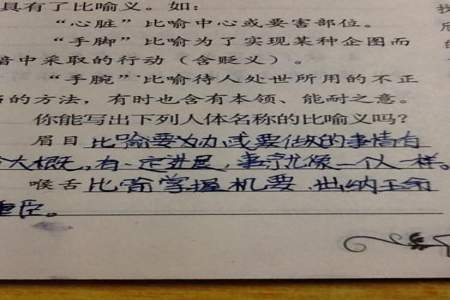 具有了比喻义。如：
“心脏”比喻中心或要害部位。
“手脚”比喻为了实现某种企图而
暗中采取的行动（含贬义）。
“手腕”比喻待人处世所用的不正
的方法，有时也含有本领、能耐之意。
你能写出下列人体名称的比喻义吗？
眉目 比喻要为办或要做的事情有
大概，有一定进展，事尤像一个人一样。
喉舌 比喻掌握机要、出纳王命
重臣。